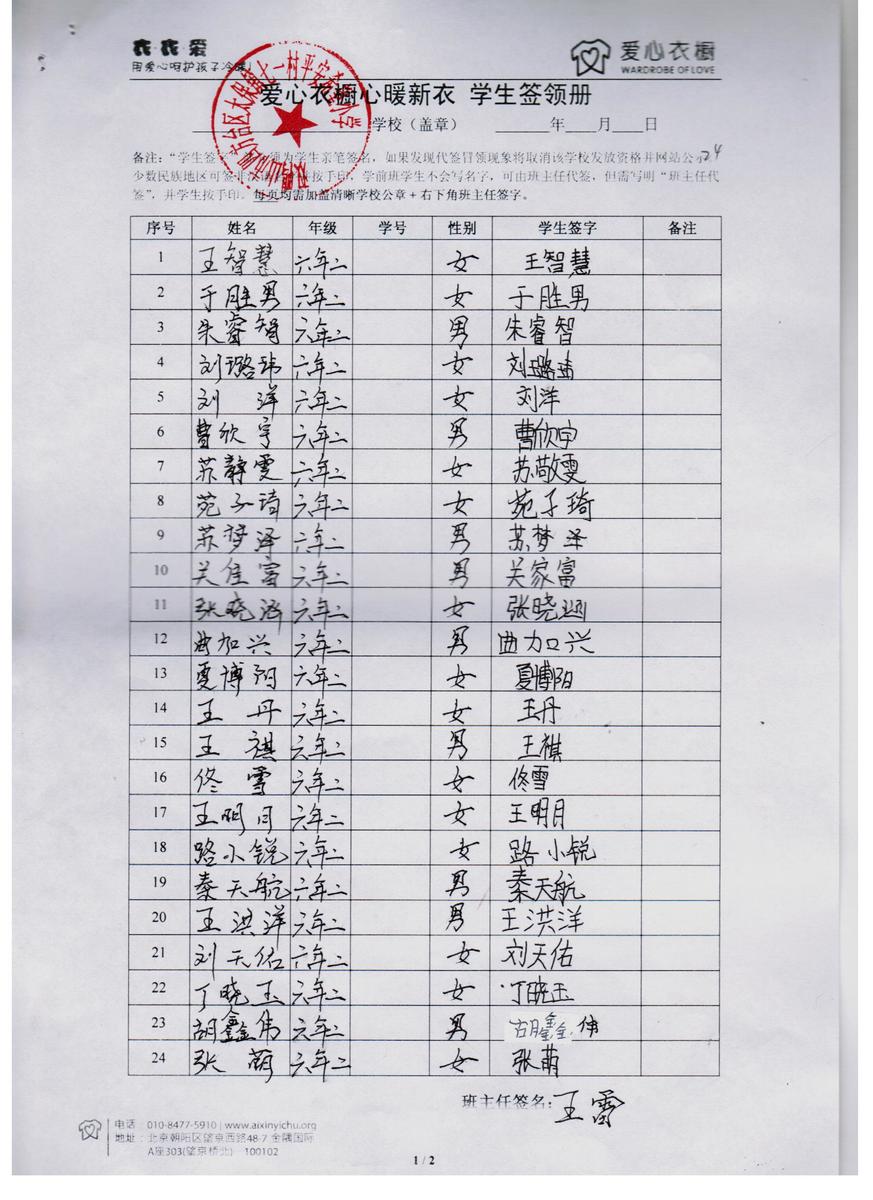 衣·衣·爱
用爱心呵护孩子冷暖!
爱心衣橱
WARDROBE OF LOVE
爱心衣橱心暖新衣 学生签领册
学校（盖章） 年 月 日
24
备注：“学生签字” 为学生亲笔签名，如果发现代签冒领现象将取消该学校发放资格并网站公示
少数民族地区可签 按手印，学前班学生不会写名字，可由班主任代签，但需写明“班主任代
签”，并学生按手印。每页均需加盖清晰学校公章+右下角班主任签字。
序号 姓名 年级 学号 性别 学生签字 备注
1 王智慧 六年二 女 王智慧
2 于胜男 六年二 女 于胜男
3 朱睿智 六年二 男 朱睿智
4 刘璐玮 六年二 女 刘璐
5 刘洋 六年二 女 刘洋
6 曹欣宇 六年二 男 曹欣宇
7 苏静雯 六年二 女 苏敬雯
8 苑子琦 六年二 女 苑子琦
9 苏梦泽 六年二 男 苏梦泽
10 关佳富 六年二 男 关家富
11 张晓涵 六年二 女 张晓
12 曲加兴 六年二 男 曲加兴
13 夏博阳 六年二 女 夏博阳
14 王丹 六年二 女 王丹
15 王祺 六年二 男 王祺
16 佟雪 六年二 女 佟雪
17 王明月 六年二 女 王明月
18 路小锐 六年二 女 路小锐
19 秦天航 六年二 男 秦天航
20 王洪洋 六年二 男 王洪洋
21 刘天佑 六年二 女 刘天佑
22 丁晓玉 六年二 女 丁晓玉
23 胡鑫伟 六年二 男 胡鑫伟
24 张萌 六年二 女 张萌
班主任签名：王雷
电话：010-8477-5910 | www.aixinyichu.org
地址：北京朝阳区望京西路48-7 金隅国际
A座303(望京桥北) 100102
1 / 2